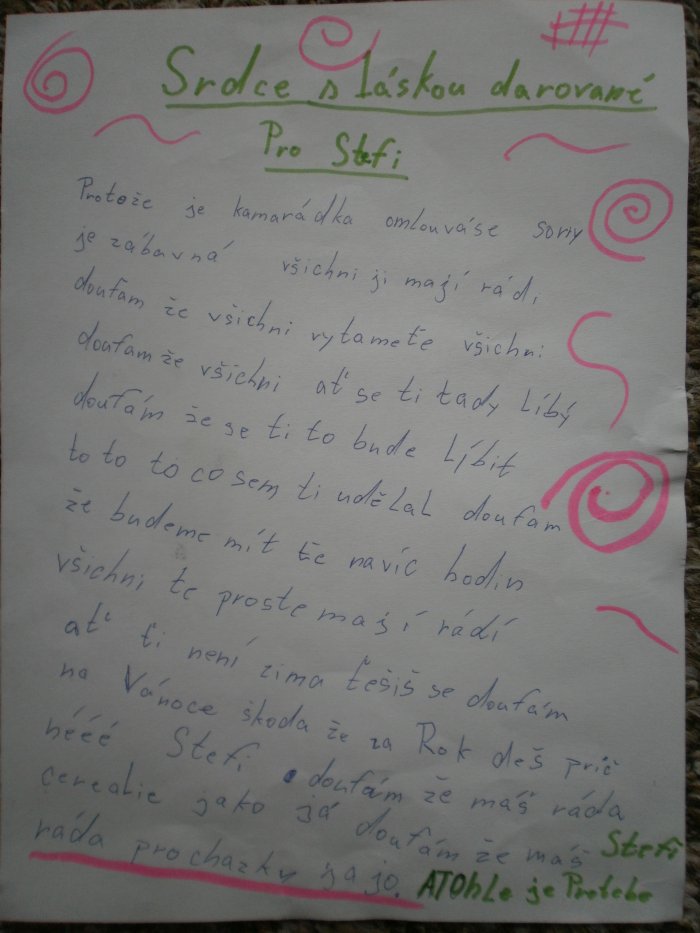 Srdce s láskou darované
Pro Stefi
Protože je kamarádka omlouváse sorry
je zábavná všichni ji mají rád,
doufám že všichni vytameťe všichni
doufam že všichni ať se ti tady líbý
doufám že se ti to bude Lýbit
to to to co sem ti udělal doufam
že budeme mít tě navíc hodin
všichni te proste mají rádí
ať ti není zima těšiš se doufám
na Vánoce škoda že za Rok deš prič
nééé Stefi doufám že máš ráda
cerealie jako já doufám že máš
ráda prochazky ja jo.
Stefi
ATOhLe je Protebe